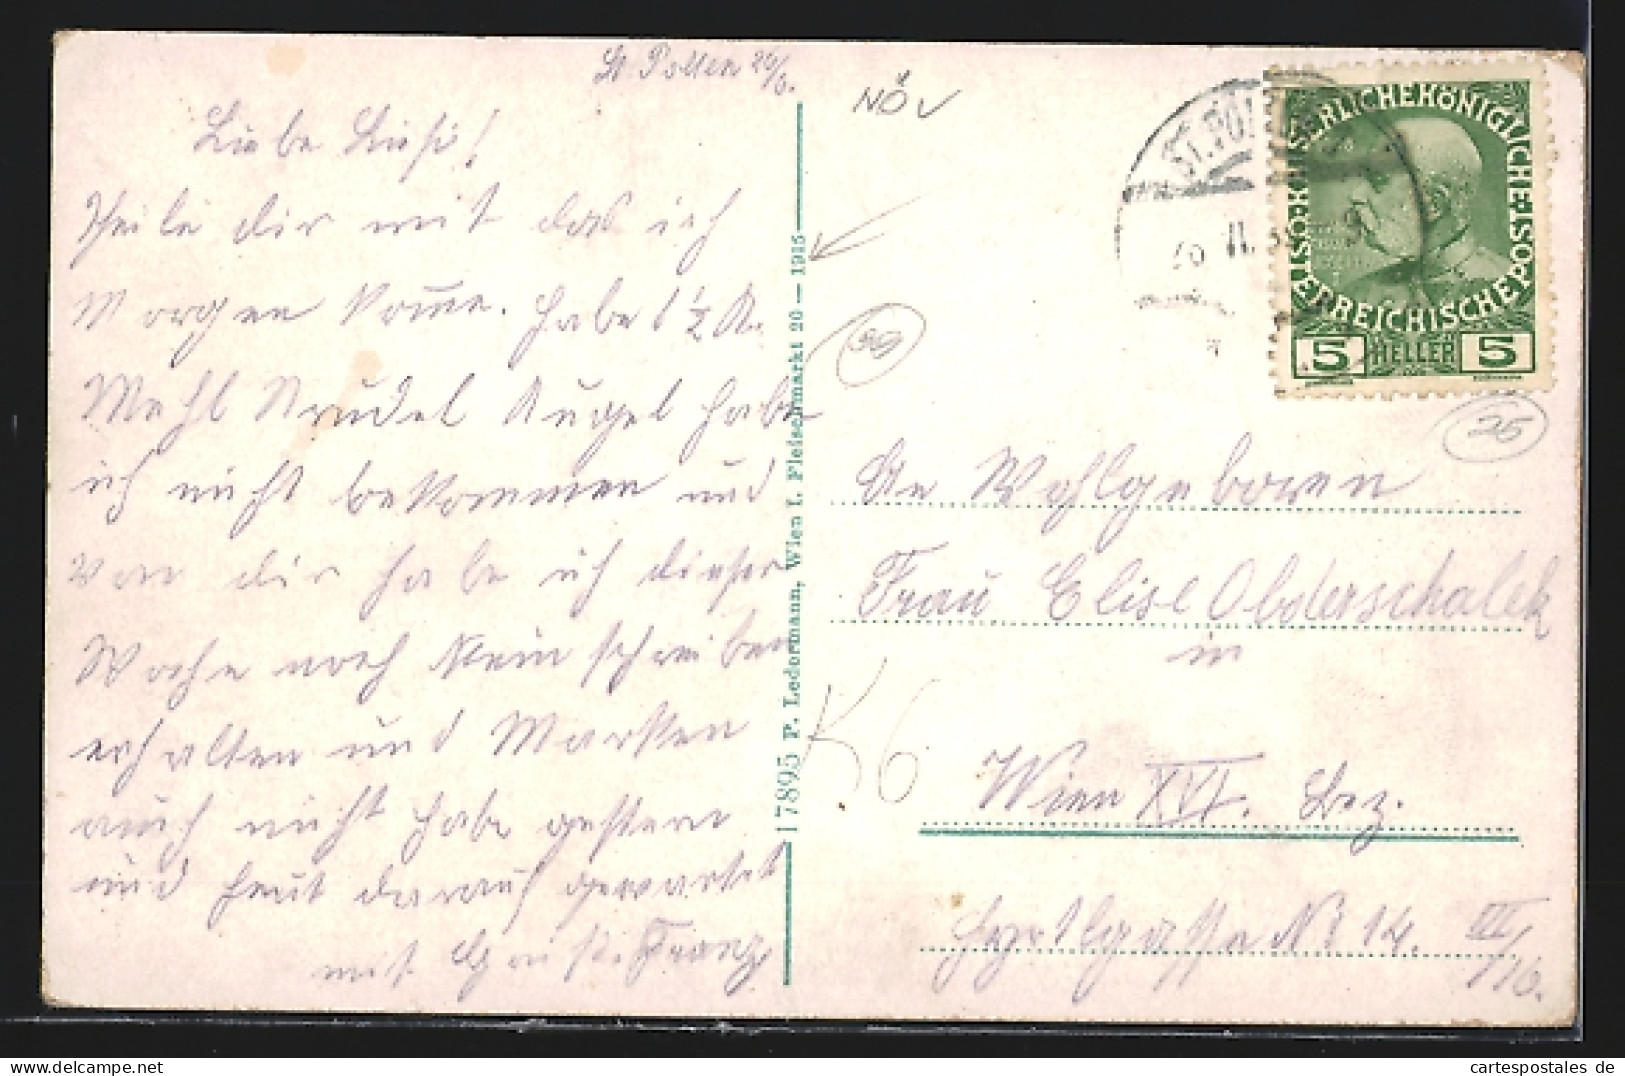 St Pölten 20/6.
Liebe Luise!
Theile dir mit das ich
Morgen kome. Habe 1 ½ K.
Mehl Nudel Kugel habe
ich nicht bekommen und
von dir habe ich dieser
Woche noch kein schreiben
erhalten und Marken
auch nicht habe gestern
und heut darauf gewartet
mit Gruß. Franz
17895 P. Ledermann, Wien I. Fleischmarkt 20 – 1915
NÖ
K6
ST. PÖLTEN
KAISERLICHE KÖNIGLICHE ÖSTERREICHISCHE POST
5 HELLER 5
25
An Wohlgeboren
Frau Elise Obderschalek
in
Wien XVI. Bez.
No 14. III/16.
cartespostales de